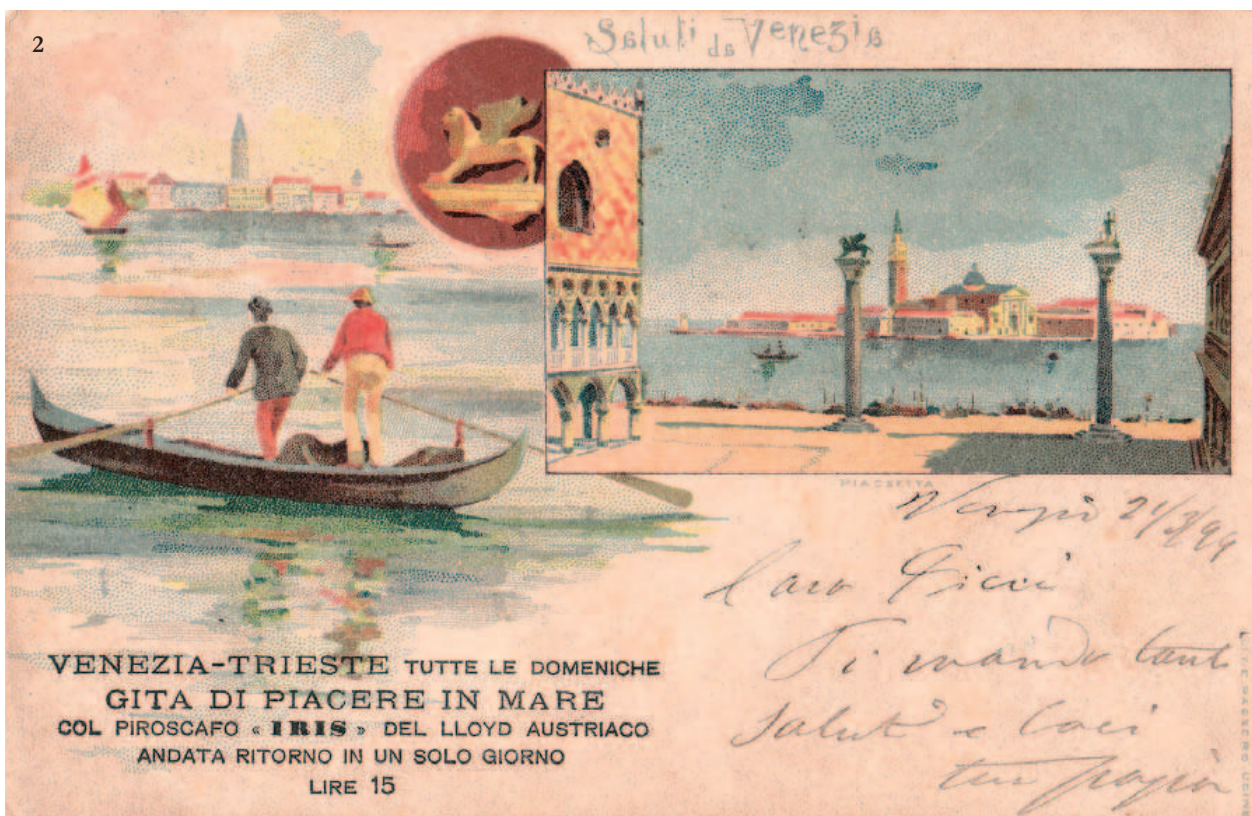 2
Saluti da Venezia
PIACSETTA
Venezia 21/3/99
Ti mando tanti
saluti e baci
tuo papà
VENEZIA-TRIESTE TUTTE LE DOMENICHE
GITA DI PIACERE IN MARE
COL PIROSCAFO « IRIS » DEL LLOYD AUSTRIACO
ANDATA RITORNO IN UN SOLO GIORNO
LIRE 15